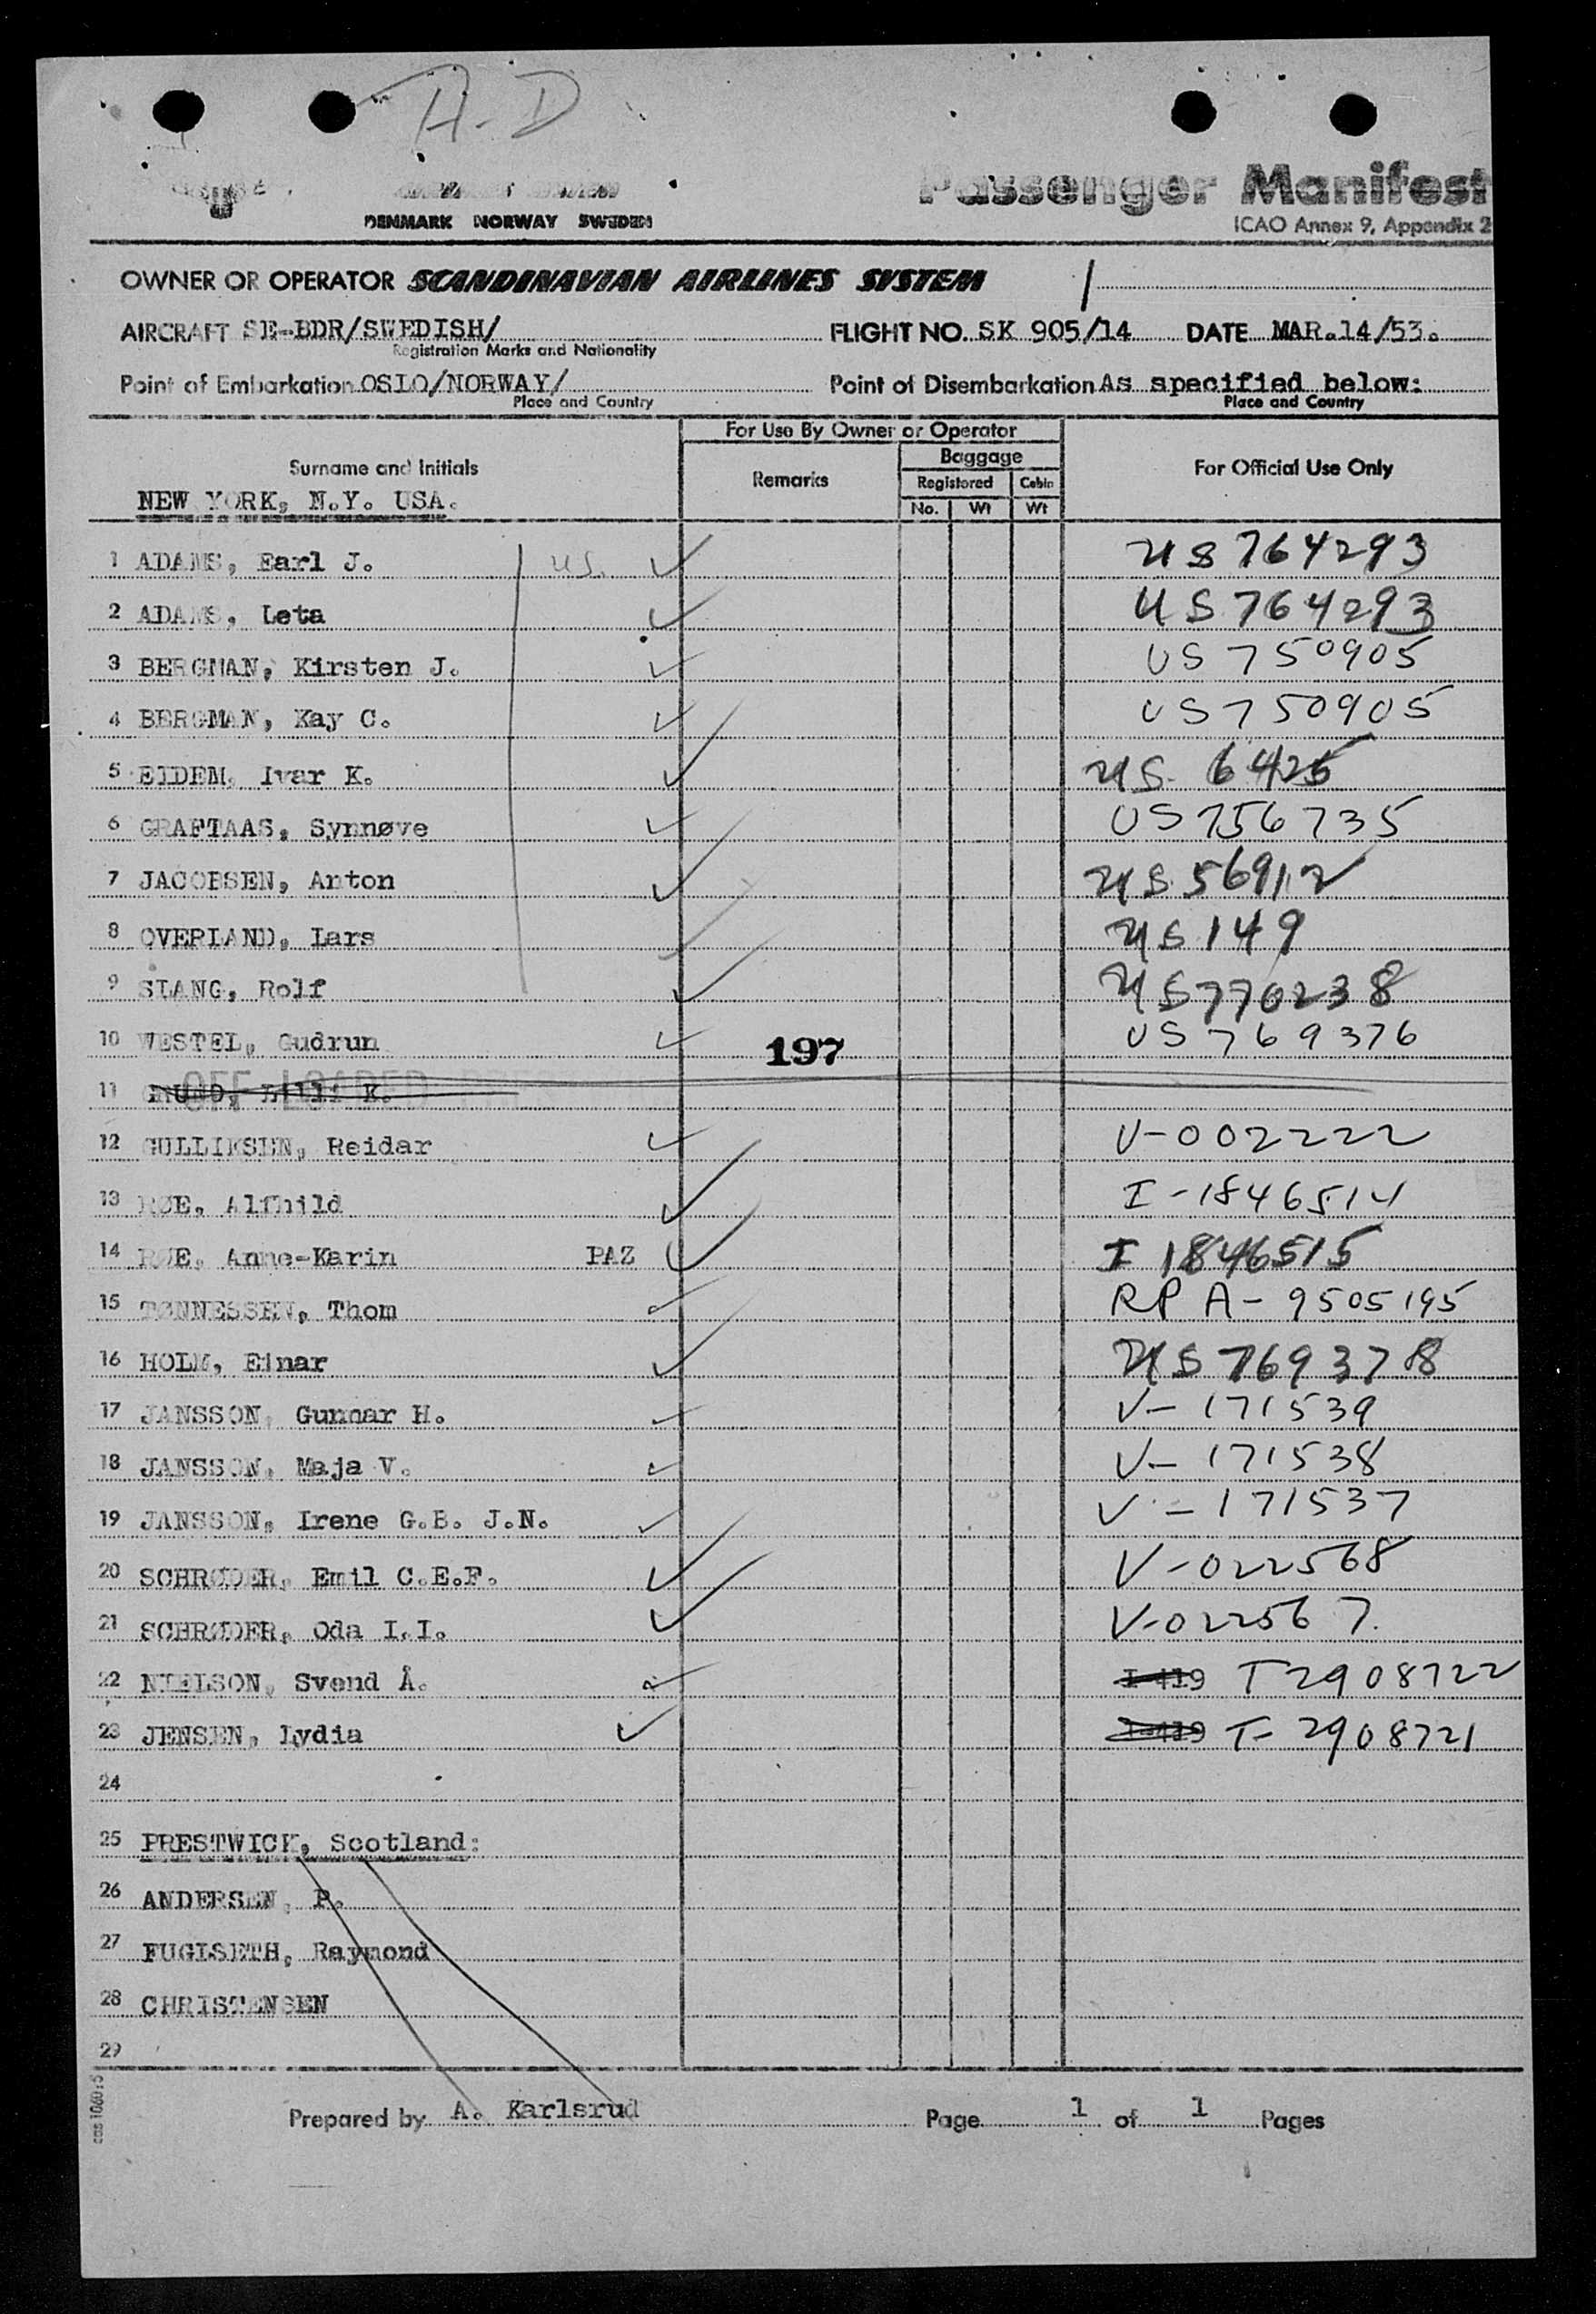 A-D
DENMARK NORWAY SWEDEN
Passenger Manifest
ICAO Annex 9, Appendix 2
OWNER OR OPERATOR SCANDINAVIAN AIRLINES SYSTEM
AIRCRAFT SE-BDR/SWEDISH/ FLIGHT NO. SK 905/14 DATE MAR.14/53.
Registration Marks and Nationality
Point of Embarkation OSLO/NORWAY/ Point of Disembarkation As specified below:
Place and Country Place and Country
For Use By Owner or Operator
Surname and Initials Remarks Baggage For Official Use Only
Registered Cabin
NEW YORK, N.Y. USA. No. Wt Wt
1 ADAMS, Earl J. US. US 764293
2 ADAMS, Leta US 764293
3 BERGMAN, Kirsten J. US 750905
4 BERGMAN, Kay C. US 750905
5 EIDEM, Ivar K. US 6425
6 GRAFTAAS, Synnøve US 756735
7 JACOBSEN, Anton US 56912
8 OVERLAND, Lars US 149
9 STANG, Rolf US 770238
10 WESTEL, Gudrun 197 US 769376
11 GRUND, Lilli K. OFF LOADED
12 GULLIKSEN, Reidar V-002222
13 RØE, Alfhild I-1846514
14 RØE, Anne-Karin PAZ I 1846515
15 TØNNESSEN, Thom RP A-9505195
16 HOLM, Einar US 769378
17 JANSSON, Gunnar H. V-171539
18 JANSSON, Maja V. V-171538
19 JANSSON, Irene G.B. J.N. V-171537
20 SCHRØDER, Emil C.E.F. V-022568
21 SCHRØDER, Oda I.I. V-022567.
22 NIELSON, Svend Å. I-419 T2908722
23 JENSEN, Lydia I-419 T-2908721
24
25 PRESTWICK, Scotland:
26 ANDERSEN, P.
27 FUGLSETH, Raymond
28 CHRISTENSEN
29
Prepared by A. Karlsrud Page 1 of 1 Pages